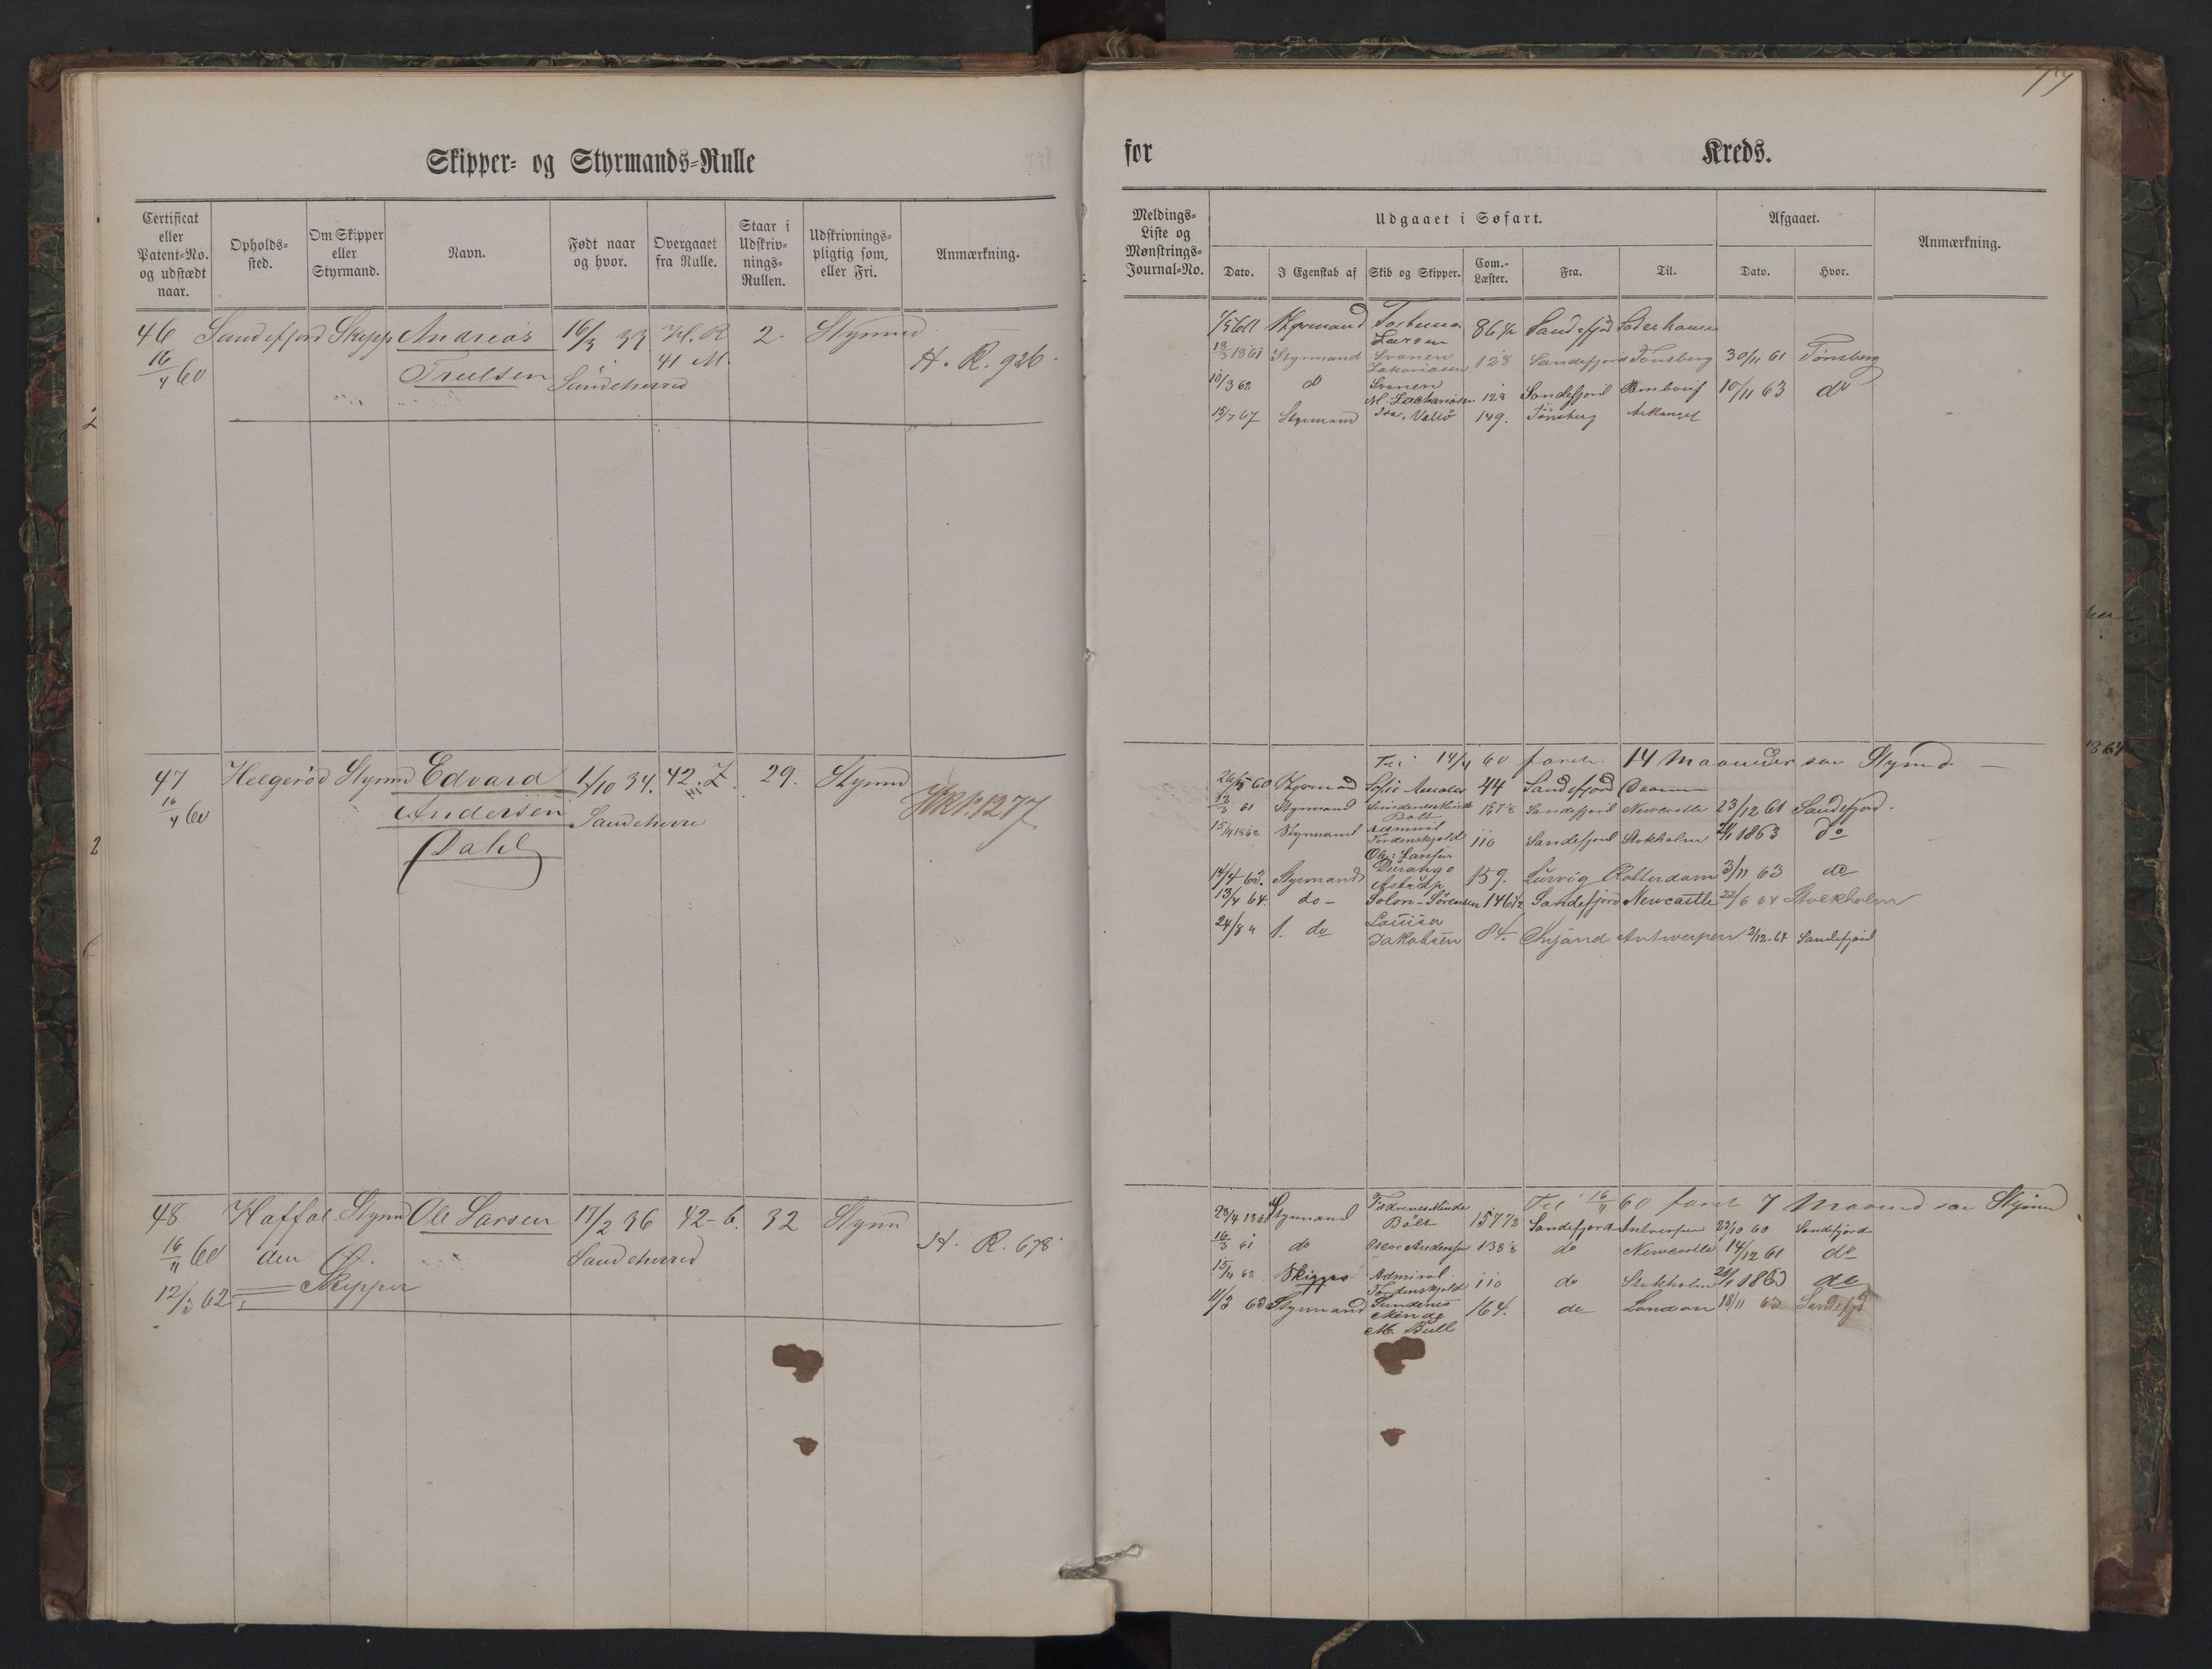 Skipper- og Styrmands-Rulle
Certificat eller Patent-No. og udstædt naar.
Opholds-sted.
Om Skipper eller Styrmand.
Navn.
Født naar og hvor.
Overgaaet fra Rulle.
Staar i Udskriv-nings-Rullen.
Udskrivnings-pligtig som, eller Fri.
Anmærkning.
46 Sandefjord Skipp Andreas 16/3 33 H. R. 2. Styrmd
16/4 60 Truelsen Sandeherred 41 M. H. R. 926.
47 Helgerød Styrmd Edvard 1/10 34. 42. Z. 29. Styrmd
16/4 60 Andersen Sandeherre 1277
Dahl
48 Haffal Styrm Ole Larsen 17/2 36 42-6. 32 Styrm
16/4 60 den Sandeherred H. R. 678
12/3 62 Skipper
for Kreds.
Meldings-Liste og Mønstrings-Journal-No.
Udgaaet i Søfart.
Afgaaet.
Anmærkning.
Dato.
I Egenskab af
Skib og Skipper.
Com.-Læster.
Fra.
Til.
Dato.
Hvor.
Styrmand Fortuna Larsen Sandefjord Soderhamn
1861 Styrmand Svanen Zakariasen 128 Sandefjord Tønsberg 30/11 61 Tønsberg
10/3 62 do Svanen 128 Sandefjord 10/11 63 do
15/7 67 Styrmand Vallø 149. Tønsberg Arkangel
14/4 60 faret 14 Maaneder som Styrmd
26/5 60 Styrmand Sofie Amalie 44 Sandefjord
61 Styrmand Bolt 157 1/2 Sandefjord Newcastle 23/12 61 Sandefjord.
15/4 1862 Styrmand Admiral Tordenskjold 110 Sandefjord Stokholm 1863 do
Ole Larsen
14/4 63. Styrmand Durango Astrup 159. Laurvig Rotterdam 3/11 63 do
13/4 64. do - Solon - Sørensen 146 1/2 Sandefjord Newcastle 22/6 64 Stockholm
24/8 " 1. do Louisa Jakobsen 84. Antwerpen 2/12. 64 Sandefjord
16/4 60 faret 7 Maaned som Styrmd
23/4 1860 Styrmand Bolt 157 1/2 Sandefjord Antwerpen 23/10 60 Sandefjord
16/3 61 do Oscar Andersen 138 1/2 do Newcastle 14/12 61 do
15/4 62 Skipper Admiral Tordenskjold 110 do Stokholm 1863 do
11/3 63 Styrmand Minde M. Bull 164. do London 18/11 63 Sandefjd